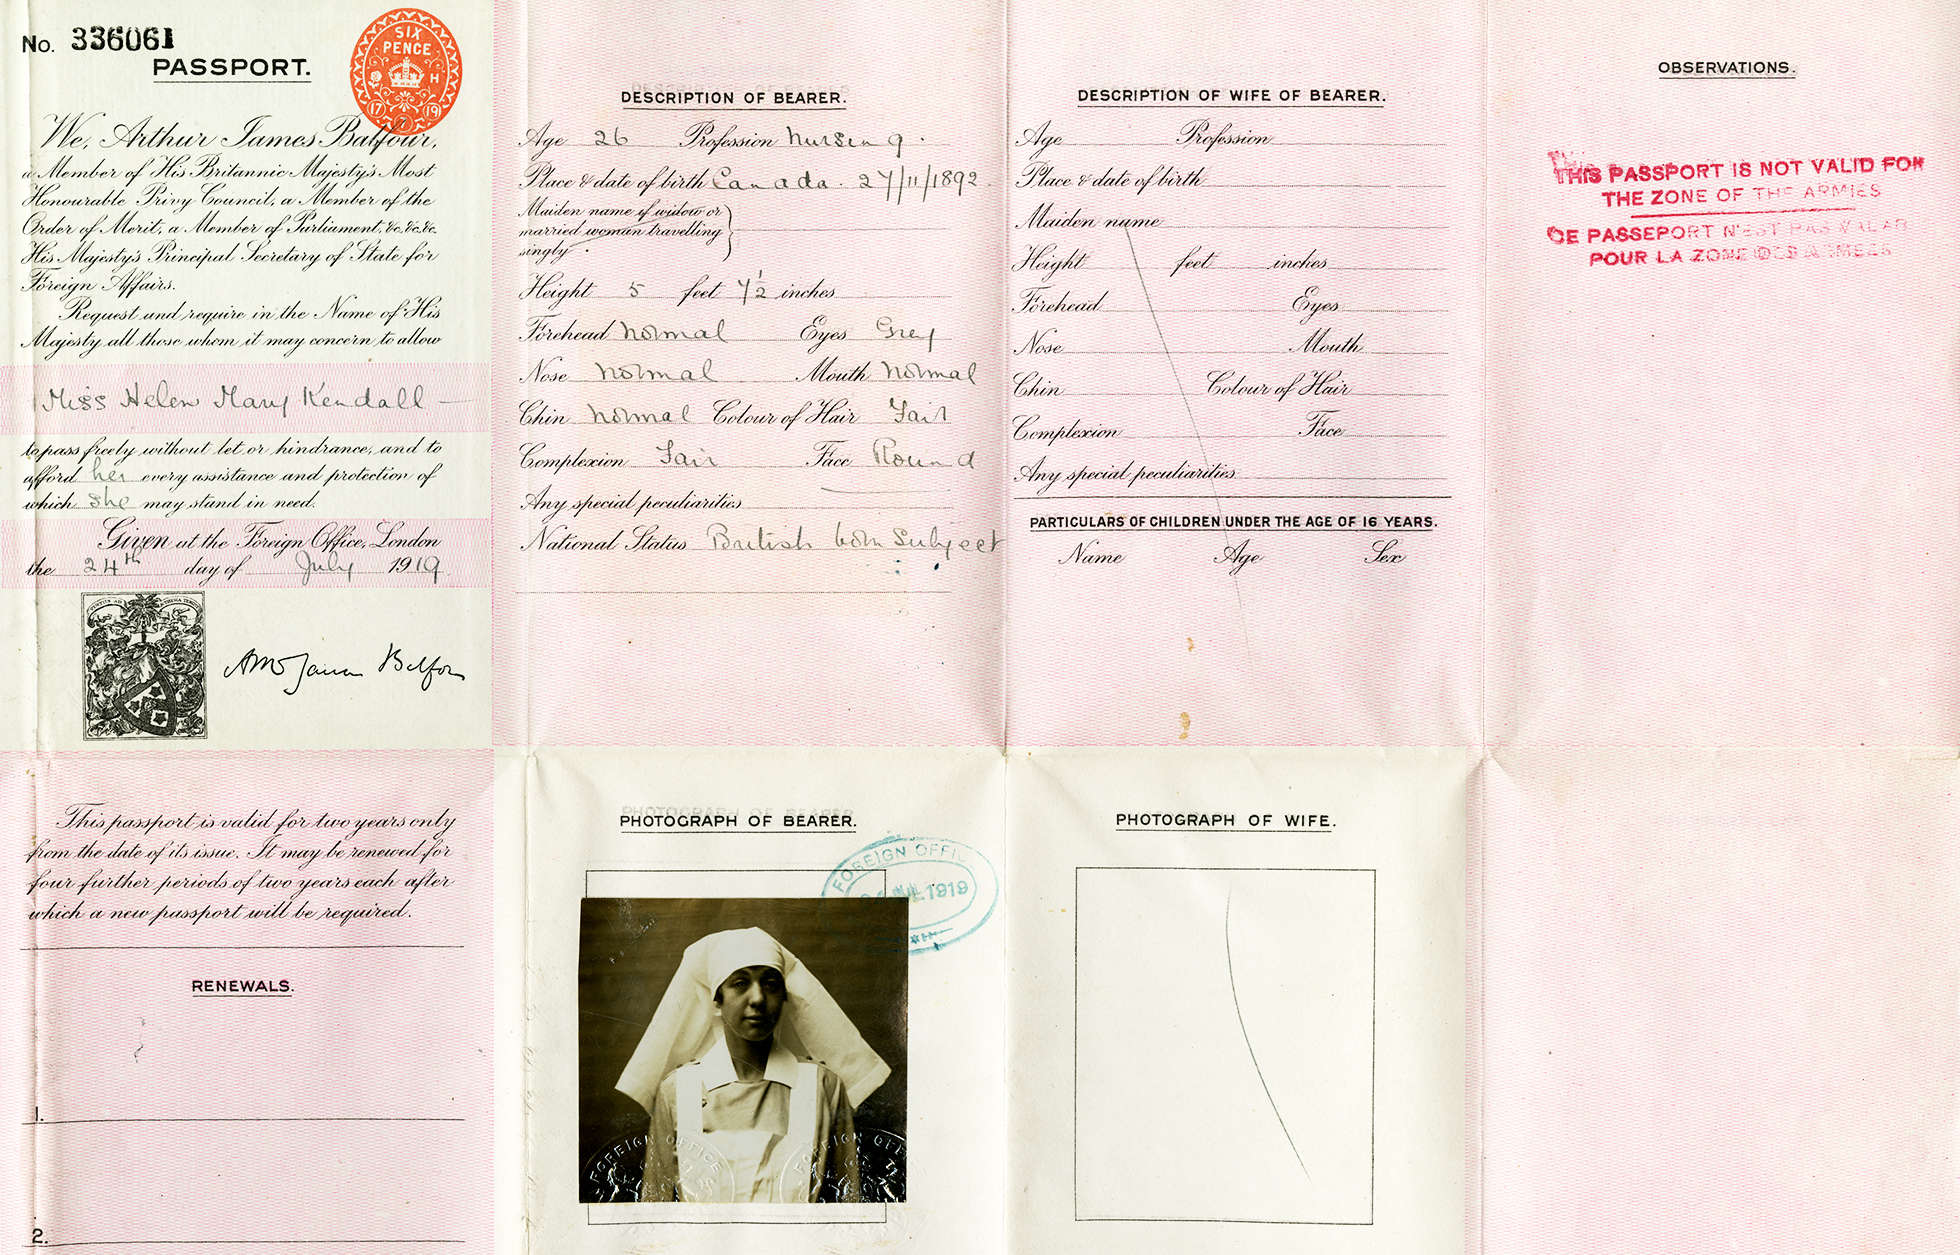 No. 336061
PASSPORT.
SIX
PENCE
H
17
7
19
We, Arthur James Balfour,
a Member of His Britannic Majesty's Most
Honourable Privy Council, a Member of the
Order of Merit, a Member of Parliament, &c. &c. &c.
His Majesty's Principal Secretary of State for
Foreign Affairs.
Request and require in the Name of His
Majesty all those whom it may concern to allow
Miss Helen Mary Kendall —
to pass freely without let or hindrance, and to
afford her every assistance and protection of
which she may stand in need.
Given at the Foreign Office, London
the 24th day of July 1919.
Balfour
This passport is valid for two years only
from the date of its issue. It may be renewed for
four further periods of two years each after
which a new passport will be required.
RENEWALS.
1.
2.
DESCRIPTION OF BEARER.
Age 26 Profession Nursing.
Place & date of birth Canada. 27/11/1892
Maiden name if widow or
married woman travelling
singly
Height 5 feet 7½ inches
Forehead Normal Eyes Grey
Nose Normal Mouth Normal
Chin Normal Colour of Hair Fair
Complexion Fair Face Round
Any special peculiarities
National Status British born Subject
PHOTOGRAPH OF BEARER.
FOREIGN OFFICE
JUL 1919
FOREIGN OFFICE
FOREIGN OFF
DESCRIPTION OF WIFE OF BEARER.
Age Profession
Place & date of birth
Maiden name
Height feet inches
Forehead Eyes
Nose Mouth
Chin Colour of Hair
Complexion Face
Any special peculiarities
PARTICULARS OF CHILDREN UNDER THE AGE OF 16 YEARS.
Name Age Sex
PHOTOGRAPH OF WIFE.
OBSERVATIONS.
THIS PASSPORT IS NOT VALID FOR
THE ZONE OF THE ARMIES
CE PASSEPORT N'EST PAS VALAB
POUR LA ZONE DES ARMEES